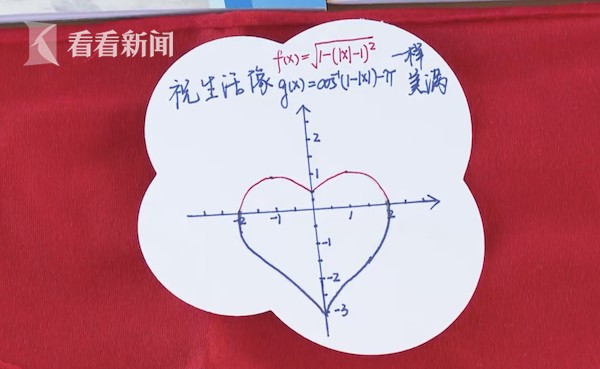 看看新闻
f(x)=√1-(|x|-1)² 一样
祝生活像 g(x)=cos⁻¹(1-|x|)-π 美满
2
1
-2 -1 1 2
-1
-2
-3